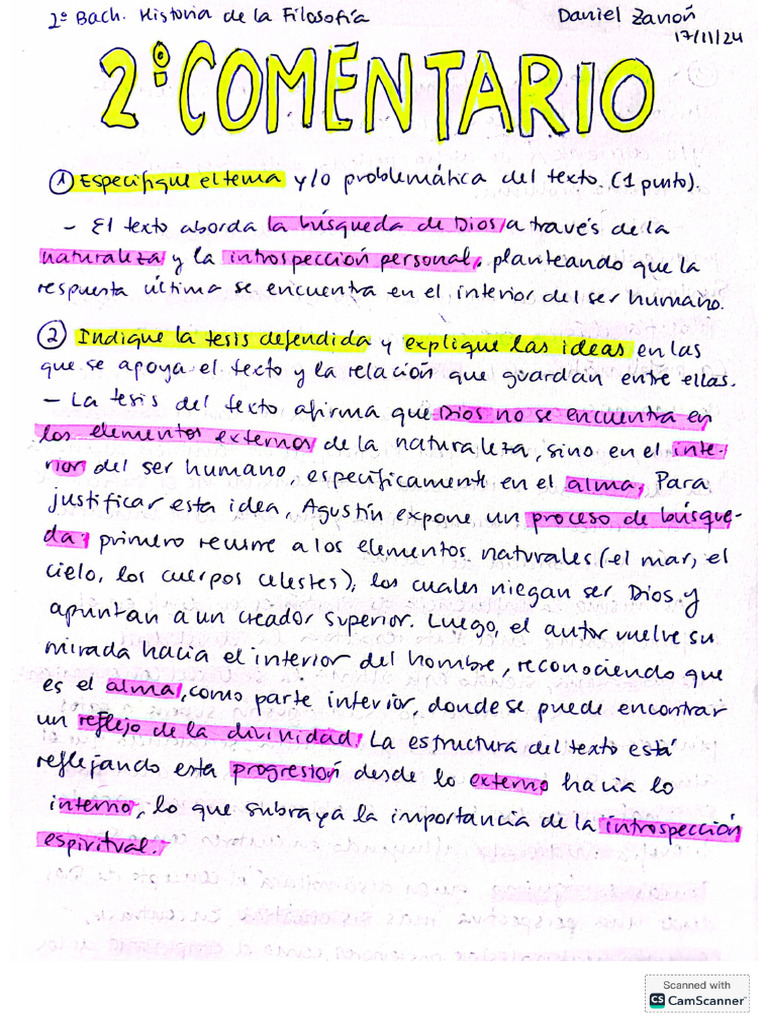 2º Bach. Historia de la Filosofía
Daniel Zanón
17/11/24
2º COMENTARIO
① Especifique el tema y/o problemática del texto. (1 punto).
- El texto aborda la búsqueda de Dios a través de la
naturaleza y la introspección personal, planteando que la
respuesta última se encuentra en el interior del ser humano.
② Indique la tesis defendida y explique las ideas en las
que se apoya el texto y la relación que guardan entre ellas.
- La tesis del texto afirma que Dios no se encuentra en
los elementos externos de la naturaleza, sino en el inte-
rior del ser humano, específicamente en el alma. Para
justificar esta idea, Agustín expone un proceso de búsque-
da: primero recurre a los elementos naturales (el mar, el
cielo, los cuerpos celestes), los cuales niegan ser Dios y
apuntan a un creador superior. Luego, el autor vuelve su
mirada hacia el interior del hombre, reconociendo que
es el alma, como parte interior, donde se puede encontrar
un reflejo de la divinidad. La estructura del texto está
reflejando esta progresión desde lo externo hacia lo
interno, lo que subraya la importancia de la introspección
espiritual.
Scanned with
CS CamScanner